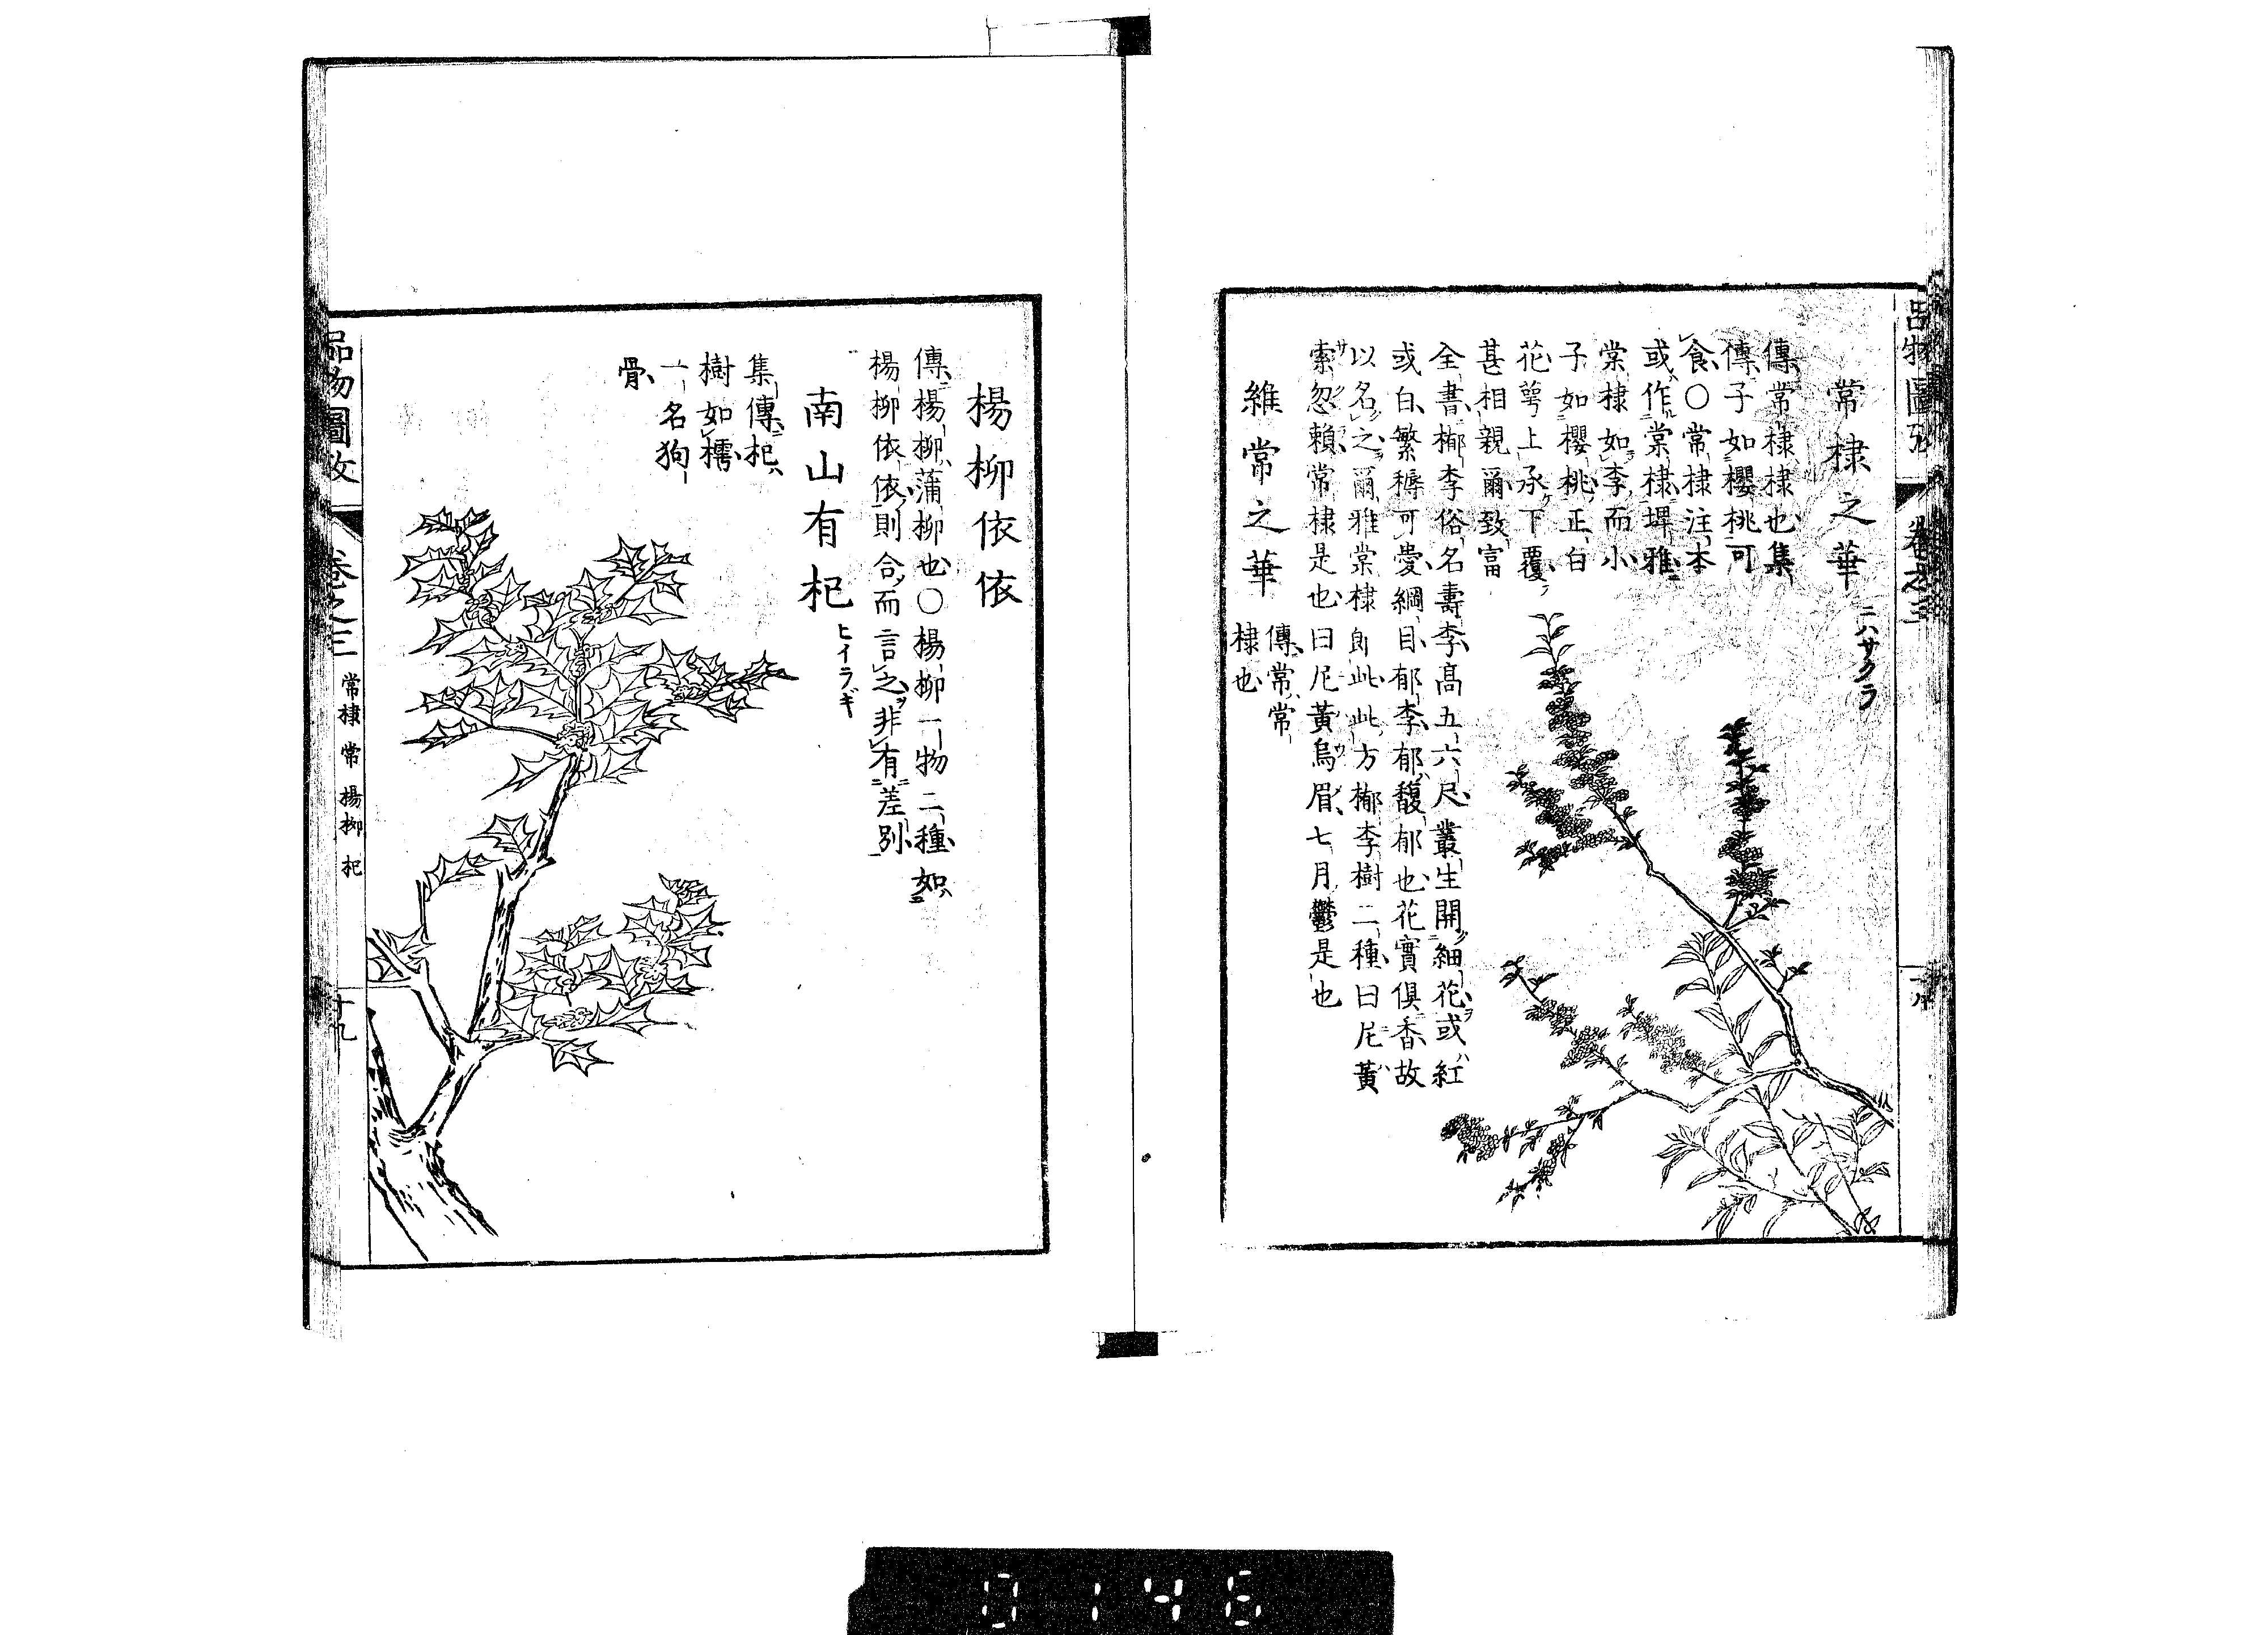 品物圖攷
卷之三
十八
常棣之華 ニハサクラ
傳常棣棣也集
傳子如櫻桃可
食○常棣注本
或作棠棣埤雅
棠棣如李而小
子如櫻桃正白
花萼上承下覆
甚相親爾致富
全書郁李俗名壽李高五六尺叢生開細花或紅
或白繁縟可愛綱目郁李郁馥郁也花實俱香故
以名之爾雅棠棣卽此此方郁李樹二種曰尼黃
索忽賴常棣是也曰尼黃烏眉七月鬱是也
維常之華
傳常常
棣也
楊柳依依
傳楊柳蒲柳也○楊柳一物二種如
楊柳依依則合而言之非有差別
南山有杞 ヒイラギ
集傳杞
樹如樗
一名狗
骨
品物圖攷
卷之三
常棣 常 楊柳 杞
十九
0146